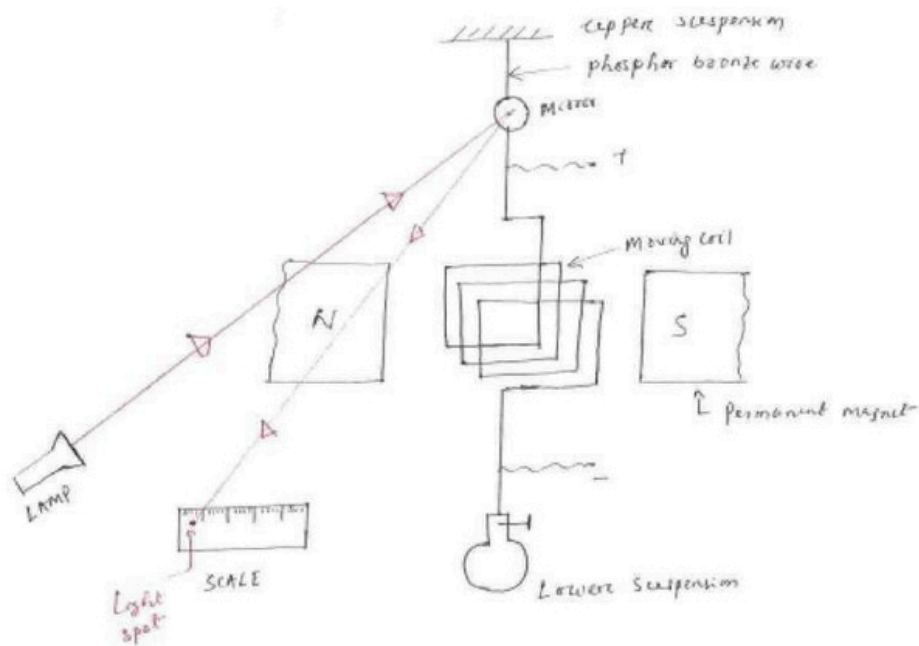 Upper suspension
phosphor bronze wire
Mirror
+
Moving coil
N
S
Permanent magnet
LAMP
-
SCALE
Lower suspension
Light
spot
0